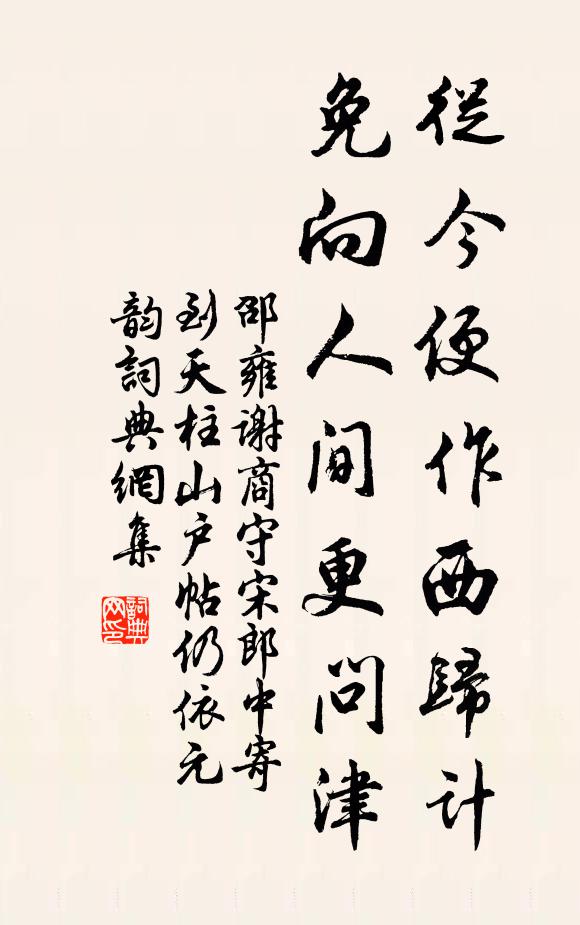 從今便作西歸計
免向人間更問津
邵雍謝商守宋郎中寄
到天柱山户帖仍依元
韵詞典網集
詞典
网印